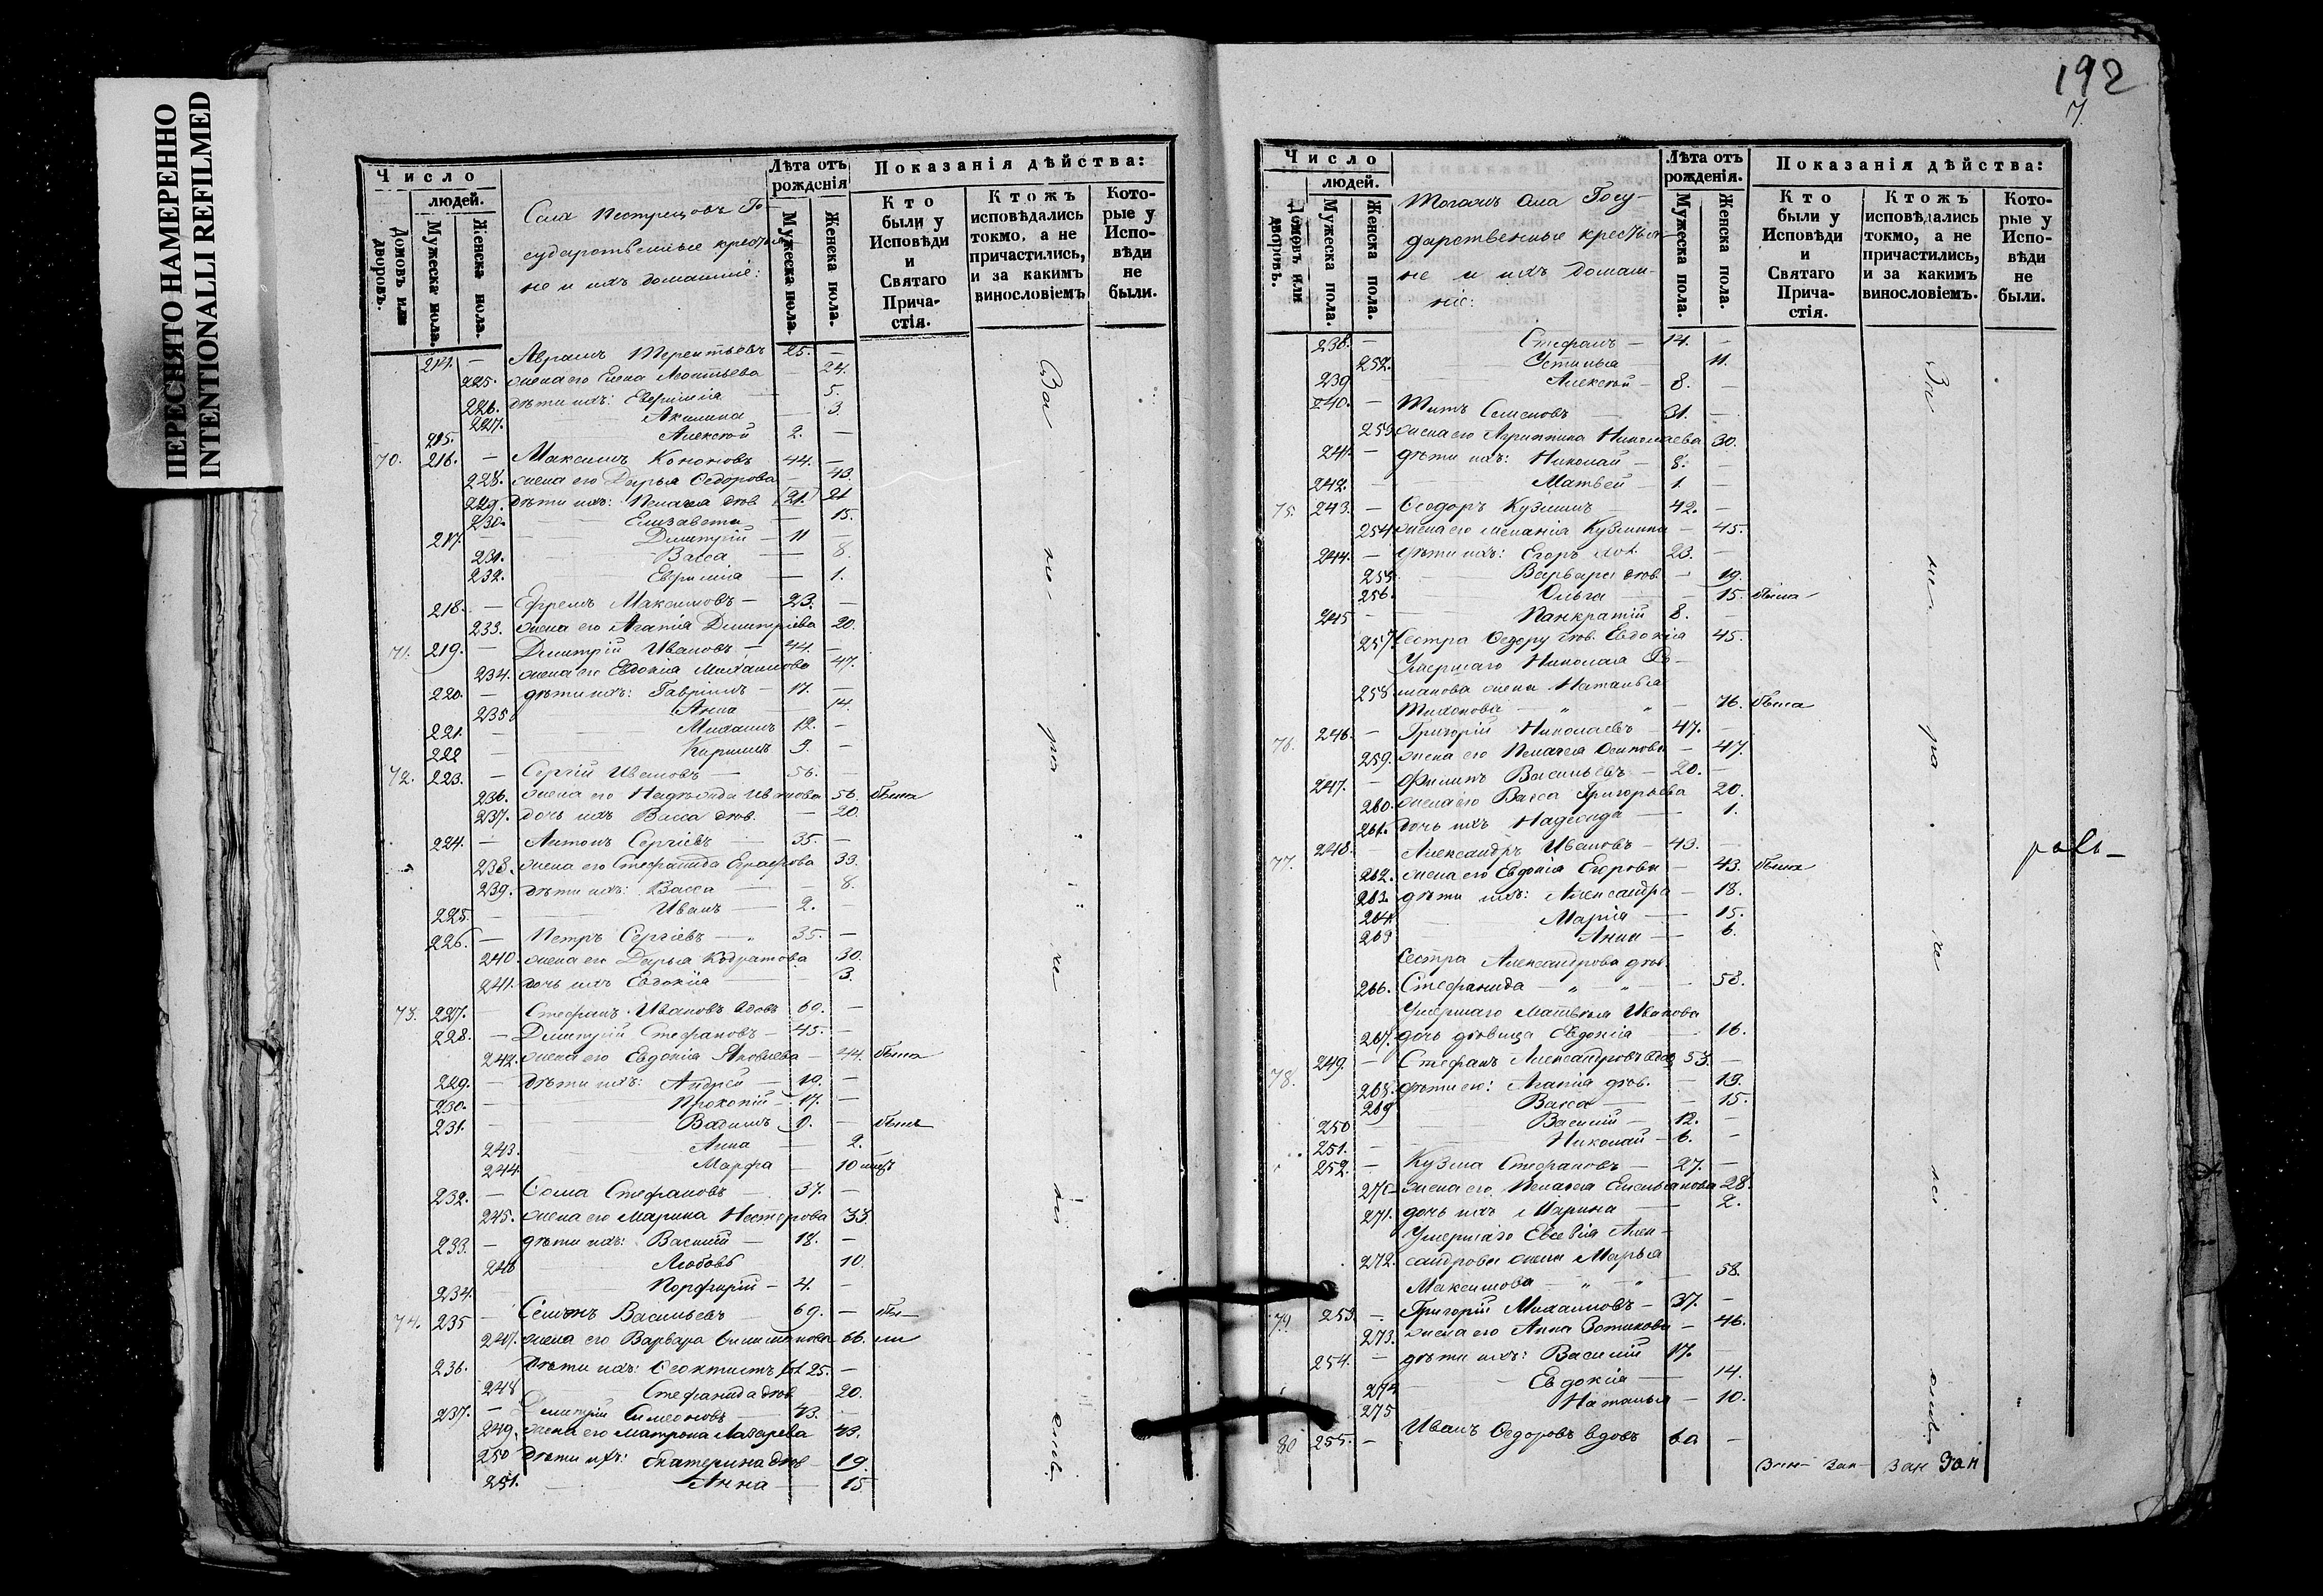 ПЕРЕСНЯТО НАМЕРЕННО
INTENTIONALLI REFILMED
Число
людей.
Домовъ или дворовъ.
Мужеска пола.
Женска пола.
Села Пестрецовъ Го-
сударственные крестья-
не и ихъ домашніе:
Лѣта отъ рожденія
Мужеска пола.
Женска пола.
Показанія дѣйства:
Кто были у Исповѣди и Святаго Причастія.
Ктожъ исповѣдались токмо, а не причастились, и за какимъ винословіемъ
Которые у Исповѣди не были.
214. — Аврамъ Терентьевъ 25. —
225. жена его Елена Леонтьева — 24.
226. дѣти ихъ: Евфимія — 5.
227. Акилина — 3.
215. Алексѣй 2. —
70. 216. — Максимъ Кононовъ 44. —
228. жена его Дарья Ѳедорова — 43.
229. дѣти ихъ: Пелагея дѣв. 21. 21
230. Елизавета — 15.
217. — Димитрій — 11 —
231. Васса — 8.
232. Евфимія — 1.
218. — Ефремъ Максимовъ — 23. —
233. жена его Агапія Димитріева 20.
71. 219. — Димитрій Ивановъ — 44. —
234. жена его Евдокія Михаилова 47.
220. — дѣти ихъ: Гавріилъ — 17. —
235 Анна — 14.
221. — Михаилъ 12. —
222 — Кириллъ 9. —
72. 223. — Сергій Ивановъ — 56. —
236. жена его Надежда Иванова 56. была
237. дочь ихъ Васса дѣв. — 20.
224. — Антонъ Сергіевъ — 35. —
238. жена его Стефанида 33.
239. дѣти ихъ: Васса — 8.
225. — Иванъ — 2. —
226. — Петръ Сергіевъ — 35. —
240. жена его Дарья Кодратова 30.
241. дочь ихъ Евдокія — 3.
73. 227. — Стефанъ Ивановъ вдовъ 69. —
228. — Димитрій Стефановъ — 45. —
242. жена его Евдокія Яковлева — 44. была
229. — дѣти ихъ: Андрей — 19. —
230. — Прокопій — 17. —
231. — 9. — былъ
243. Анна — 2.
244. Марфа — 10
232. — Ѳома Стефановъ — 37. —
245. жена его Марина Нестерова 33.
233. — дѣти ихъ: Василій — 18. —
246 Любовь 10.
234. — Порфирій — 4. —
74. 235 — Семенъ Васильевъ 69. —
247. жена его Варвара 66.
236. дѣти ихъ: Ѳеоктистъ 25. —
248 Стефанида дѣв. — 20.
237. — Димитрій Симеоновъ — 43. —
249. жена его Матрона Лазарева 43.
250 дѣти ихъ: Екатерина дѣв — 19.
251. Анна — 15
192
7.
Число
людей.
Домовъ или дворовъ.
Мужеска пола.
Женска пола.
Тогожъ села Госу-
дарственные крестья-
не и ихъ домаш-
ніе:
Лѣта отъ рожденія.
Мужеска пола.
Женска пола.
Показанія дѣйства:
Кто были у Исповѣди и Святаго Причастія.
Ктожъ исповѣдались токмо, а не причастились, и за какимъ винословіемъ.
Которые у Исповѣди не были.
238. — Стефанъ — 14. —
252. Устинья — 11.
239 Алексѣй — 8. —
240. — Титъ Семеновъ — 31. —
253 жена его Агриппина Николаева 30.
241. — дѣти ихъ: Николай — 8. —
242. — Матвей — 1. —
75. 243. — Ѳеодоръ Кузминъ — 42. —
254. жена его Меланія Кузмина — 45.
244. — дѣти ихъ: Егоръ 23. —
255. Варвара дѣв. — 19.
256. Ольга — 15. была
245 — Панкратій 8. —
257. Сестра Ѳедору дѣв. Евдокія 45.
Умершаго Николая Ро-
258. манова жена Наталья
Тихонова — 76. была
76. 246. — Григорій Николаевъ — 47. —
259. жена его Пелагея Осипова — 47.
247. — Филипъ Васильевъ — 20. —
260. жена его Васса Григорьева 20.
261. дочь ихъ Надежда — 1.
77. 248. — Александръ Ивановъ — 43. —
262. жена его Евдокія Егорова — 43. была
263. дѣти ихъ: Александра — 18.
264. Марія — 15.
265 Анна — 6.
Сестра Александрова дѣв.
266. Стефанида — 58.
Умершаго Матвѣя Иванова
267. дочь дѣвица Евдокія — 16.
78. 249. — Стефанъ Александровъ вдов. 53. —
268. дѣти его: Агапія дѣв. — 19.
269 Васса — 15.
250 — Василій — 12. —
251. — Николай — 6. —
252. — Кузма Стефановъ — 27. —
270 жена его Пелагея Емельянова 28.
271. дочь ихъ Марина — 2.
Умершаго Евсевія Алек-
272. сандрова жена Марья
Максимова — 58.
79 253. — Григорій Михаиловъ — 37. —
273. жена его Анна Зотикова — 46.
254. — дѣти ихъ: Василій 17.
274 Евдокія — 14.
275 Наталья — 10.
80 255. — Иванъ Ѳедоровъ вдовъ —